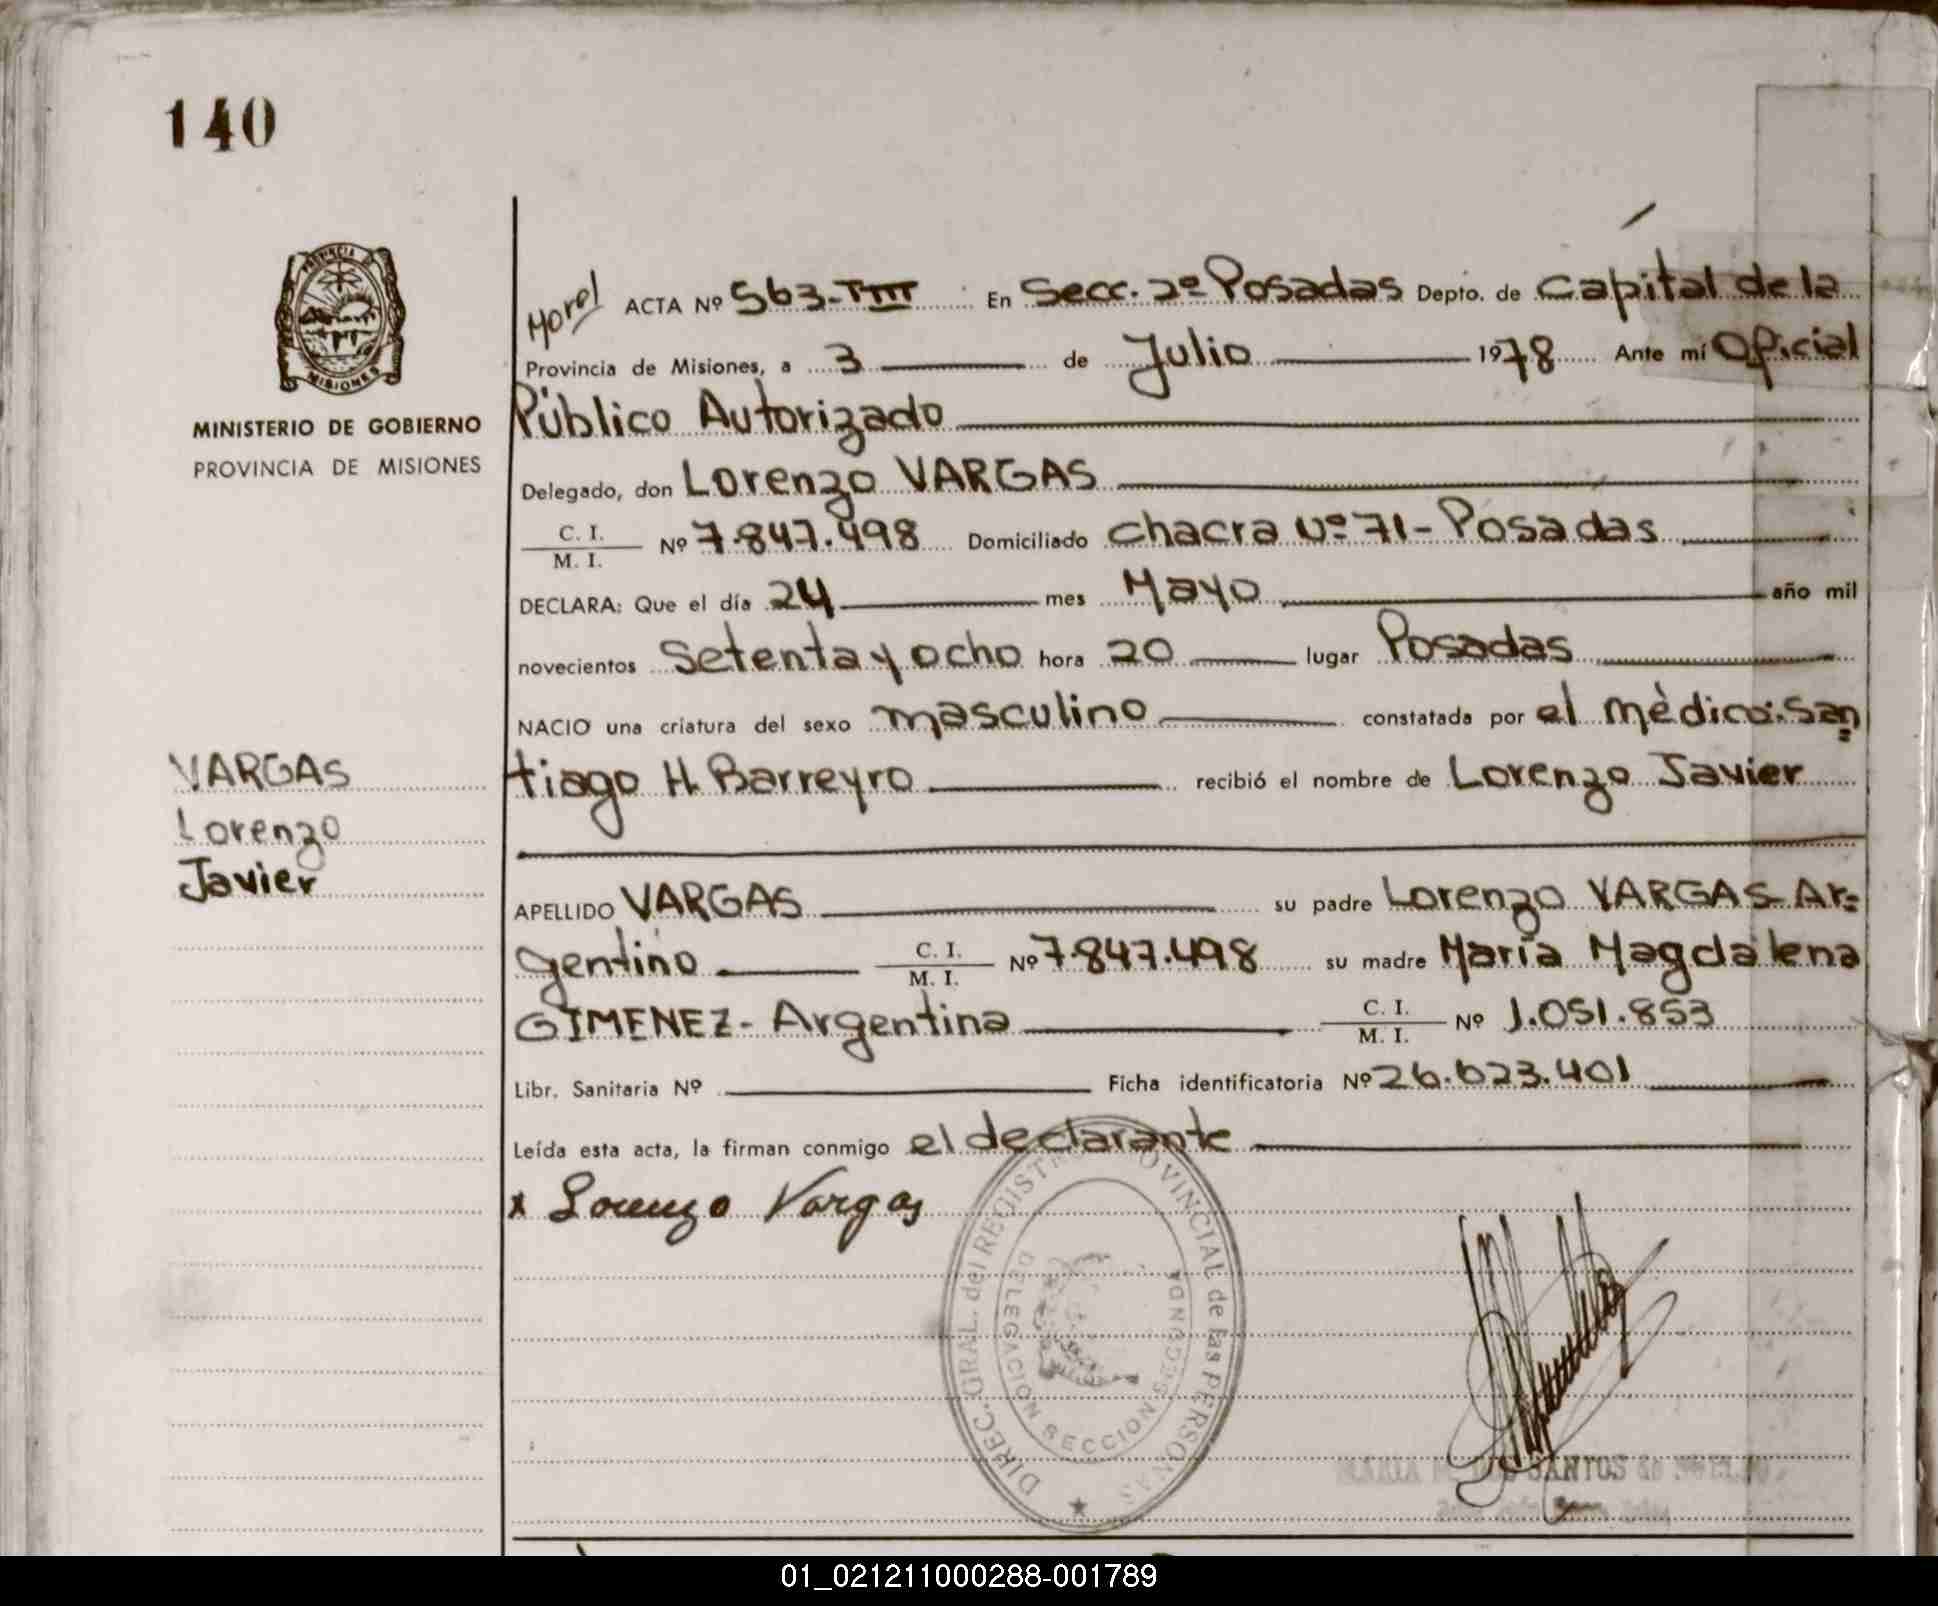 140
PROVINCIA DE
MISIONES
MINISTERIO DE GOBIERNO
PROVINCIA DE MISIONES
VARGAS
Lorenzo
Javier
ACTA Nº 563-TIII En Secc. 2º Posadas Depto. de Capital de la
Provincia de Misiones, a 3 de Julio 1978 Ante mí Oficial
Público Autorizado
Delegado, don Lorenzo VARGAS
C. I.
M. I. Nº 7.847.498 Domiciliado Chacra Nº 71-Posadas
DECLARA: Que el día 24 mes Mayo año mil
novecientos Setenta y ocho hora 20 lugar Posadas
NACIO una criatura del sexo masculino constatada por el mèdico: San=
tiago H. Barreyro recibió el nombre de Lorenzo Javier
APELLIDO VARGAS su padre Lorenzo VARGAS- Ar=
gentino C. I.
M. I. Nº 7.847.498 su madre María Magdalena
GIMENEZ- Argentina C. I.
M. I. Nº 1.051.853
Libr. Sanitaria Nº Ficha identificatoria Nº 26.623.401
Leída esta acta, la firman conmigo el declarante
x Lorenzo Vargas
DIREC. GRAL. del REGISTRO PROVINCIAL de las PERSONAS
DELEGACION SECCION SEGUNDA
SANTOS de
01_021211000288-001789